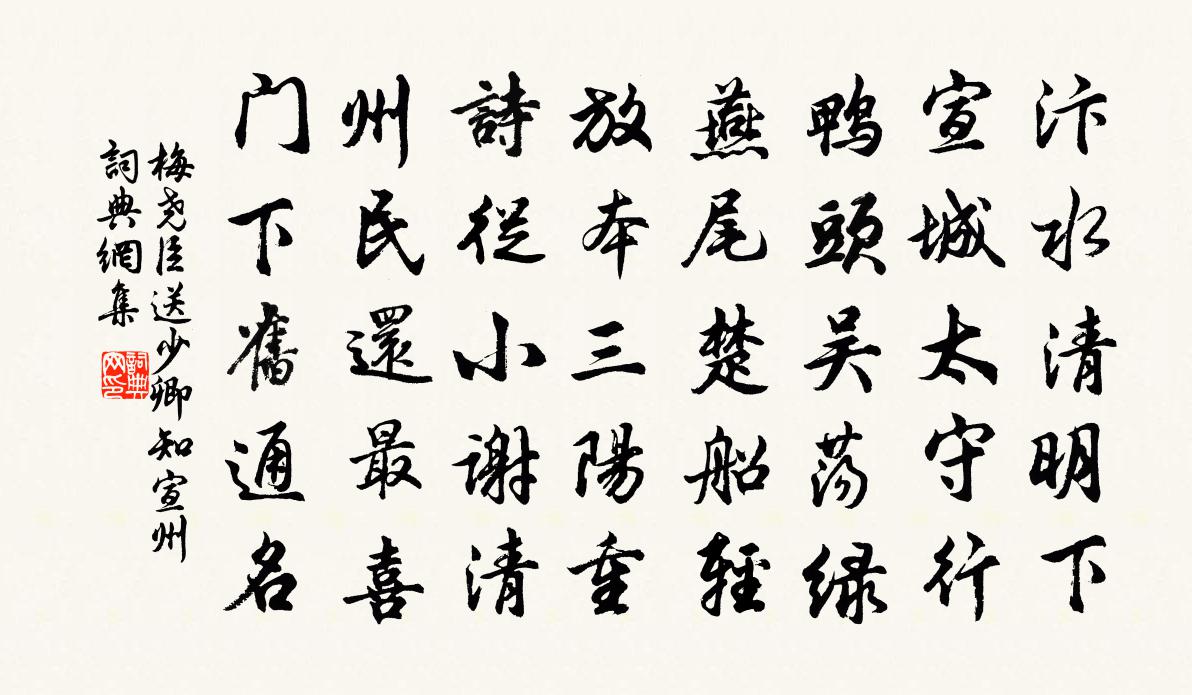 汴水清明下
宣城太守行
鸭頭吴荡緑
燕尾楚船輕
放本三陽重
詩從小謝清
州民還最喜
门下舊通名
梅尧臣送少卿知宣州
詞典網集
詞典网印